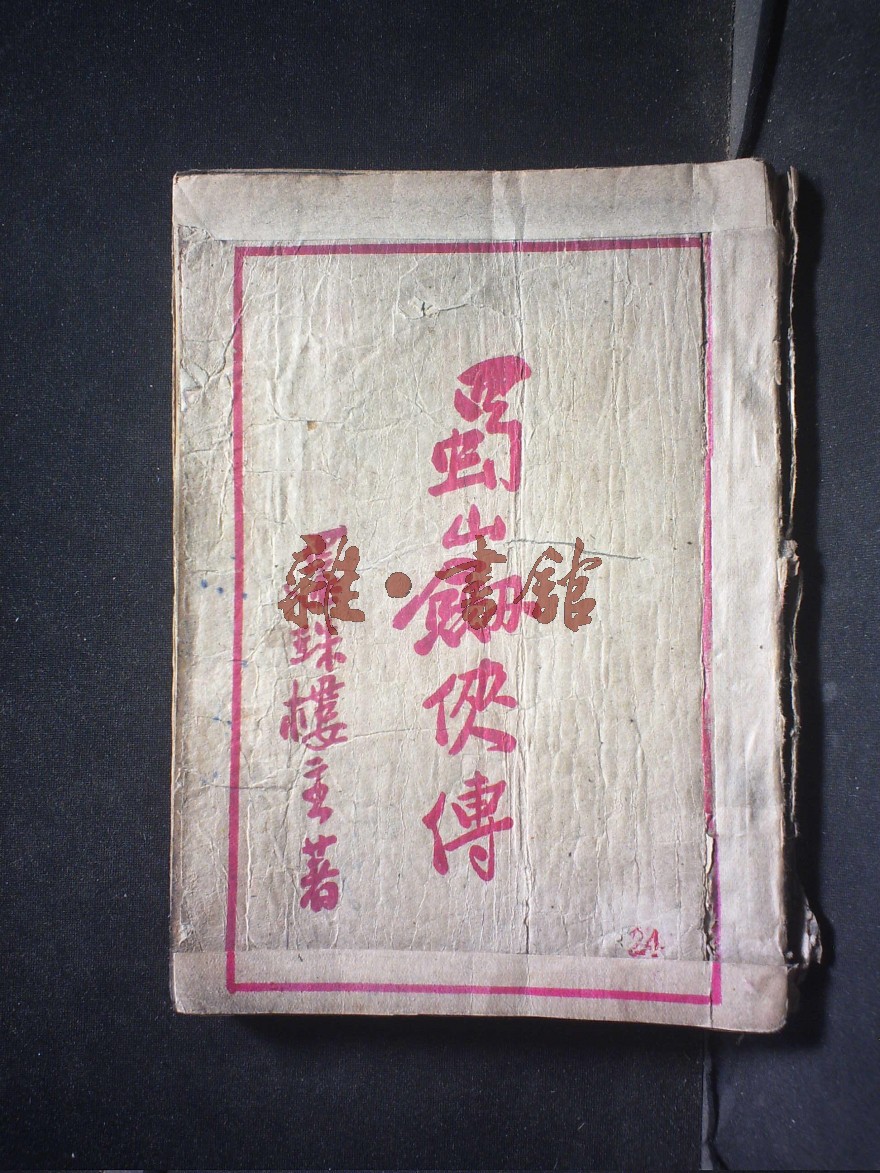 蜀山劍俠傳
還珠樓主著
雜·書館
24